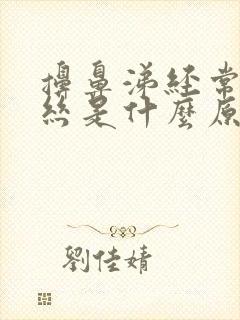 擤鼻涕經常
絲是什麼原
劉佳婧